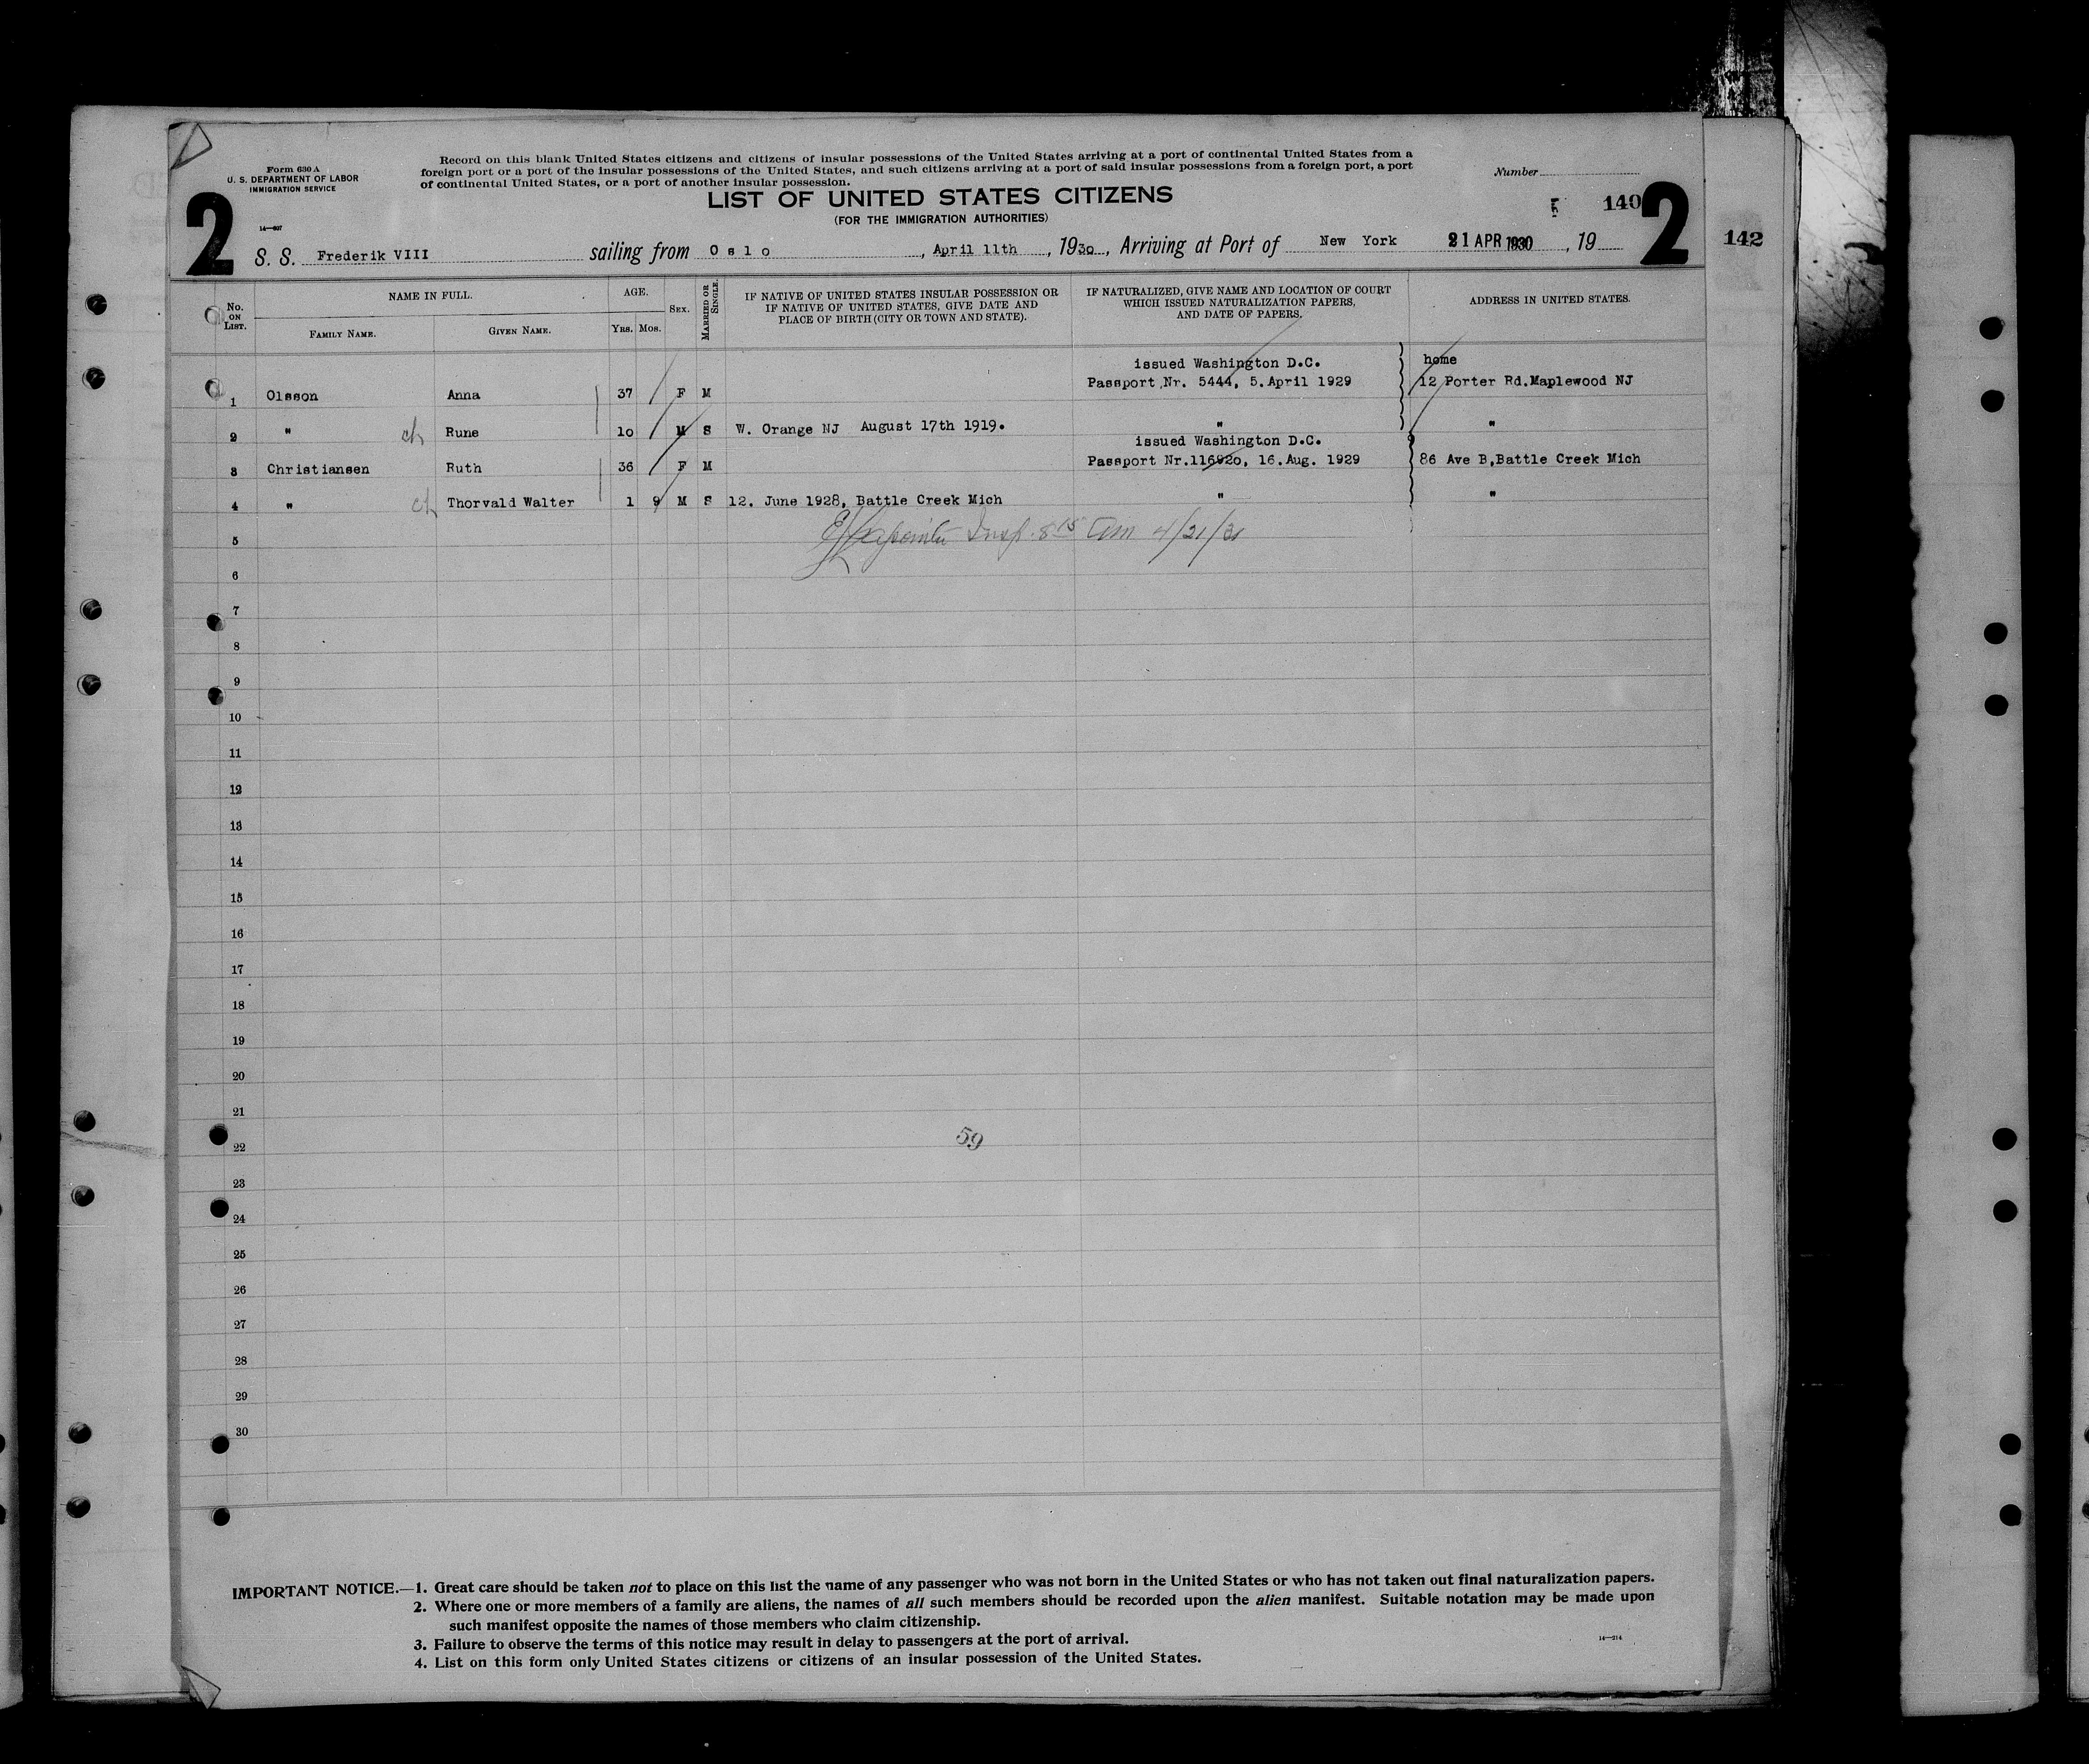 Form 630 A
U. S. DEPARTMENT OF LABOR
IMMIGRATION SERVICE
14—407
Record on this blank United States citizens and citizens of insular possessions of the United States arriving at a port of continental United States from a
foreign port or a port of the insular possessions of the United States, and such citizens arriving at a port of said insular possessions from a foreign port, a port
of continental United States, or a port of another insular possession.
Number
LIST OF UNITED STATES CITIZENS
(FOR THE IMMIGRATION AUTHORITIES)
2
140
2
142
S. S. Frederik VIII sailing from Oslo, April 11th, 1930, Arriving at Port of New York 21 APR 1930, 19
No. ON LIST.
NAME IN FULL.
FAMILY NAME.
GIVEN NAME.
AGE.
YRS. MOS.
SEX.
MARRIED OR SINGLE.
IF NATIVE OF UNITED STATES INSULAR POSSESSION OR
IF NATIVE OF UNITED STATES, GIVE DATE AND
PLACE OF BIRTH (CITY OR TOWN AND STATE).
IF NATURALIZED, GIVE NAME AND LOCATION OF COURT
WHICH ISSUED NATURALIZATION PAPERS,
AND DATE OF PAPERS.
ADDRESS IN UNITED STATES.
issued Washington D.C. home
1 Olsson Anna 37 F M Passport Nr. 5444, 5.April 1929 12 Porter Rd.Maplewood NJ
2 " ch Rune 10 M S W. Orange NJ August 17th 1919. " "
issued Washington D.C.
3 Christiansen Ruth 36 F M Passport Nr.116920, 16.Aug. 1929 86 Ave B,Battle Creek Mich
4 " ch Thorvald Walter 1 9 M S 12. June 1928, Battle Creek Mich " "
Insp. 8 15 am 4/21/30
5
6
7
8
9
10
11
12
13
14
15
16
17
18
19
20
21
59
22
23
24
25
26
27
28
29
30
IMPORTANT NOTICE.—1. Great care should be taken not to place on this list the name of any passenger who was not born in the United States or who has not taken out final naturalization papers.
2. Where one or more members of a family are aliens, the names of all such members should be recorded upon the alien manifest. Suitable notation may be made upon
such manifest opposite the names of those members who claim citizenship.
3. Failure to observe the terms of this notice may result in delay to passengers at the port of arrival.
14—214
4. List on this form only United States citizens or citizens of an insular possession of the United States.